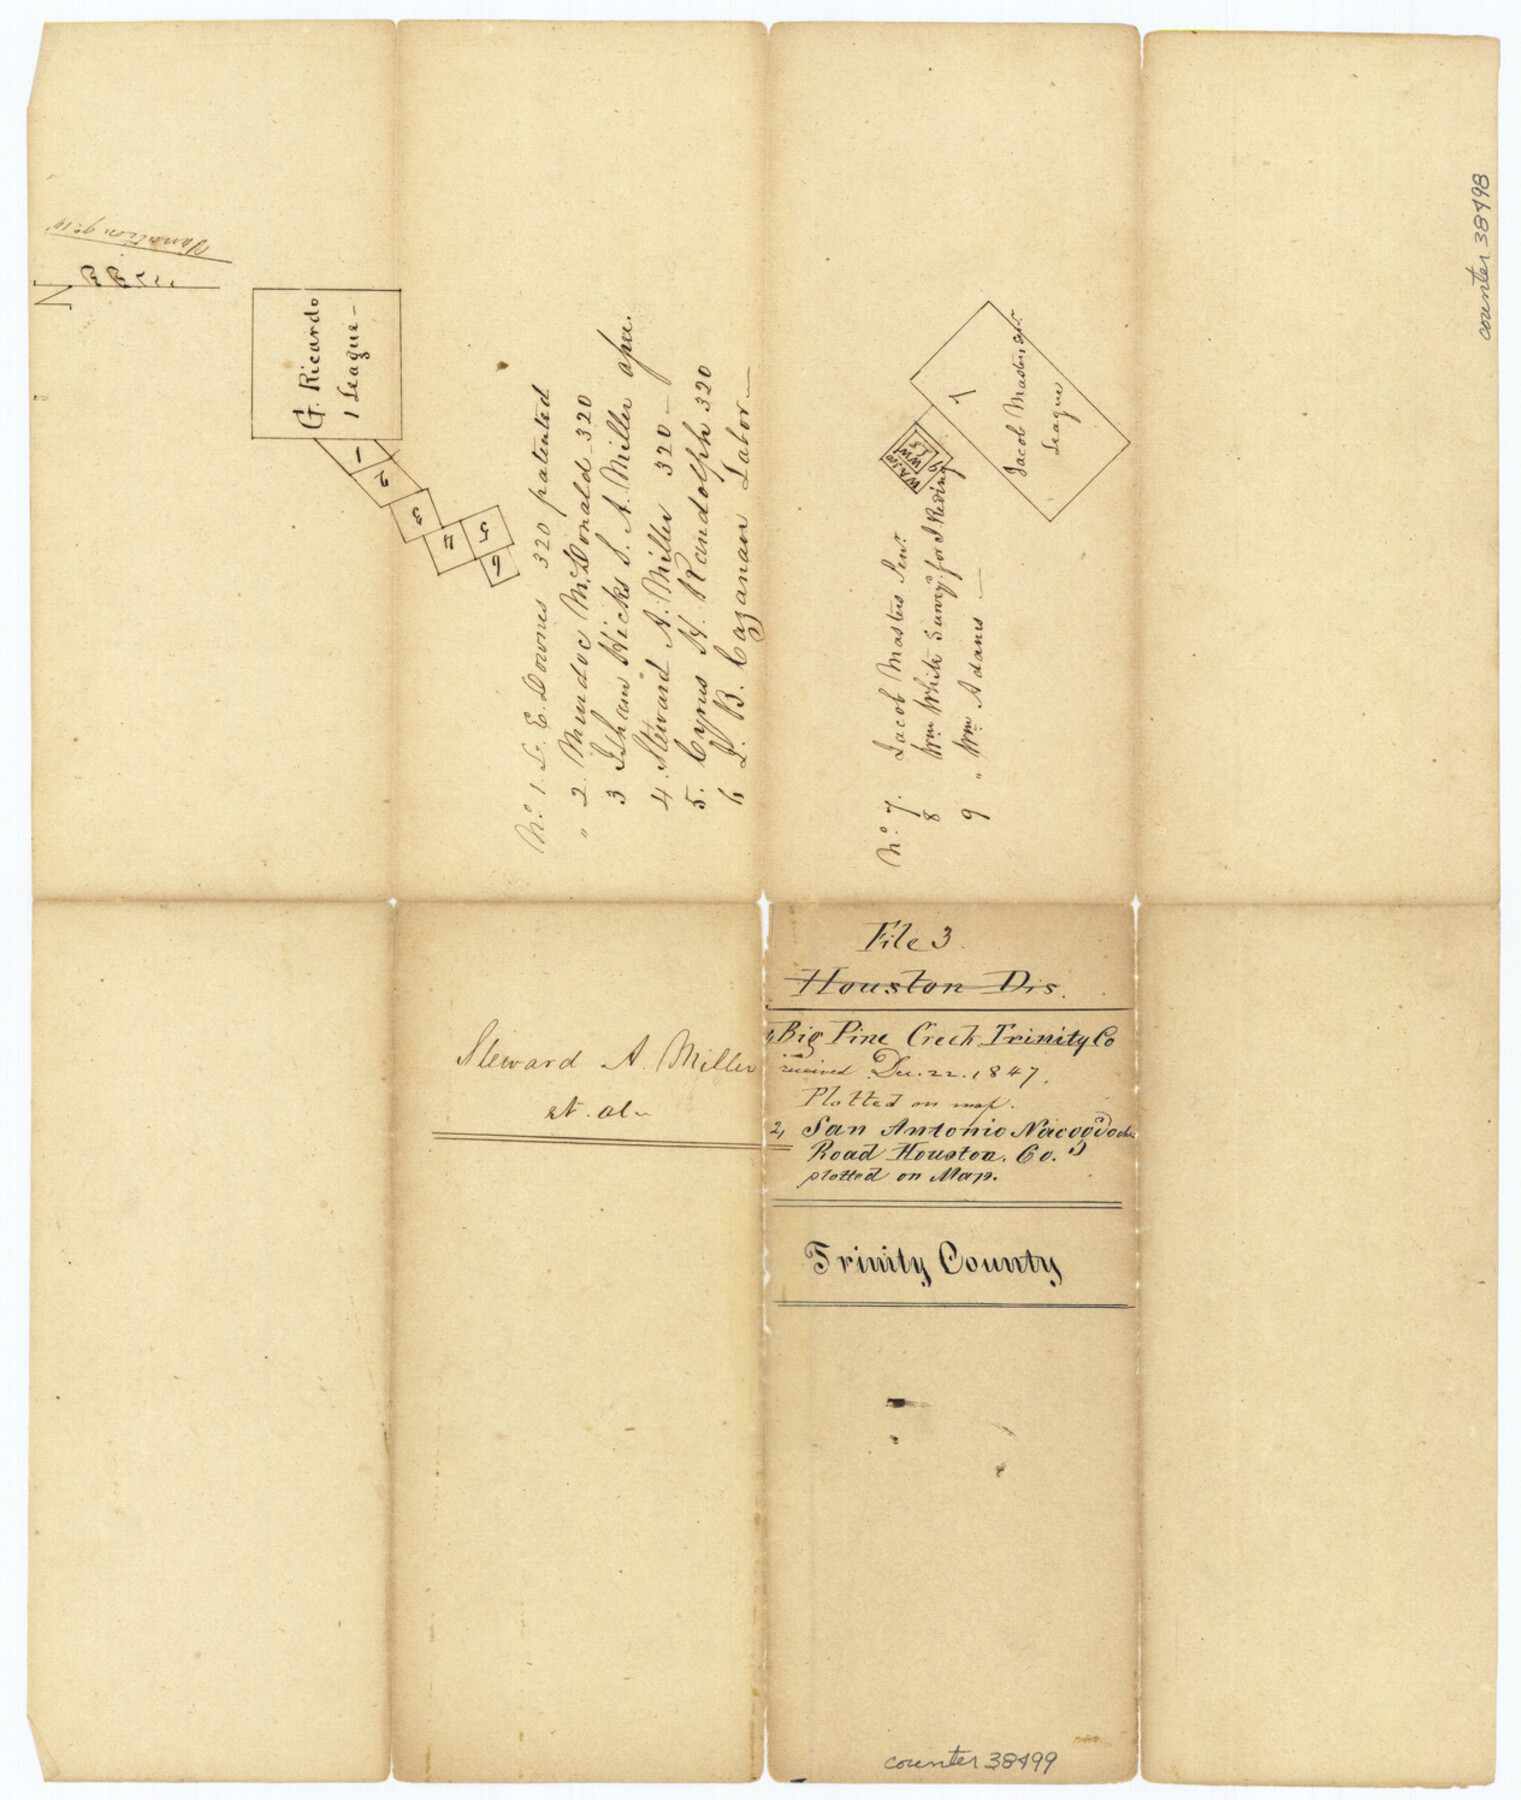 Variation 9° 10'
N
G. Ricardo
1 League —
1
2
3
4
5
6
No. 1. L. E. Downes 320 patented
" 2. Murdoc McDonald 320
3 Isham Hicks S. A. Miller apee.
4. Steward A. Miller 320 —
5. Cyrus H. Randolph 320
6 L. B. Cazanau Labor —
7
Jacob Masters Senr.
League
9
No. 7. Jacob Masters Senr.
8 Wm White Survy. for J. Reding
9 " Wm Adams —
counter 38498
Steward A. Miller
et. al.
File 3.
Houston Dis.
1, Big Pine Creek Trinity Co
received Dec. 22. 1847.
Plotted on map.
2, San Antonio Nacogdoches
Road Houston. Co.
plotted on Map.
Trinity County
counter 38499